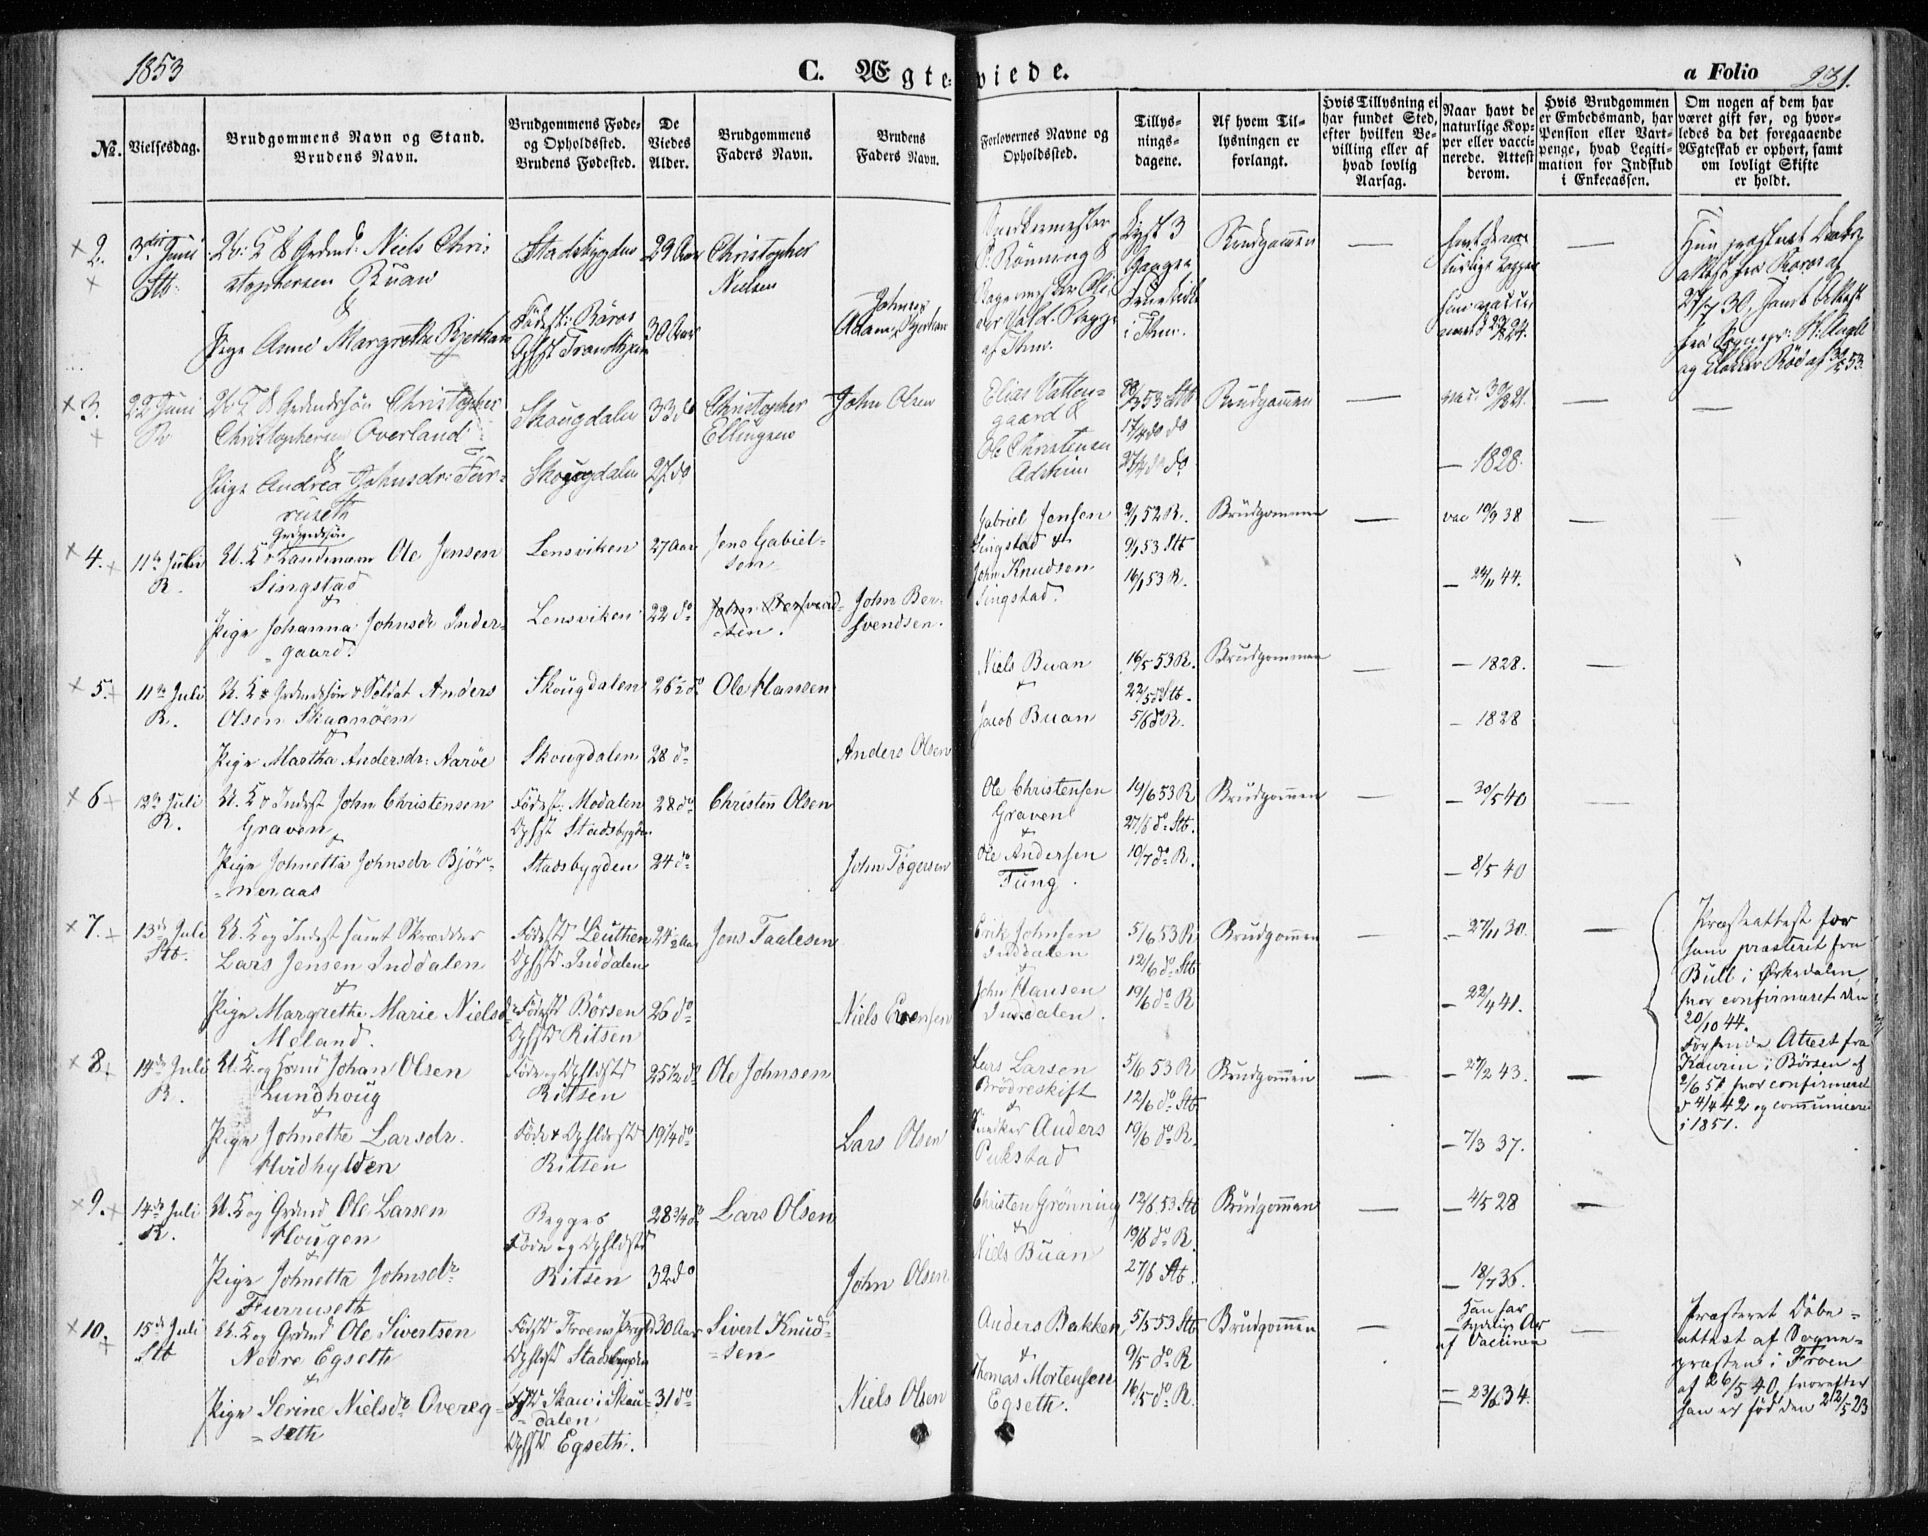 1853
C. Ægte-viede.
a Folio 231.
No.
Vielsesdag.
Brudgommens Navn og Stand.
Brudens Navn.
Brudgommens Føde-
og Opholdssted.
Brudens Fødested.
De
Viedes
Alder.
Brudgommens
Faders Navn.
Brudens
Faders Navn.
Forlovernes Navne og
Opholdssted.
Tillys-
nings-
dagene.
Af hvem Til-
lysningen er
forlangt.
Hvis Tillysning ei
har fundet Sted,
efter hvilken Be-
villing eller af
hvad lovlig
Aarsag.
Naar havt de
naturlige Kop-
per eller vacci-
nerede. Attest
derom.
Hvis Brudgommen
er Embedsmand, har
Pension eller Vart-
penge, hvad Legiti-
mation for Indskud
i Enkecassen.
Om nogen af dem har
været gift før, og hvor-
ledes da det foregaaende
Ægteskab er ophørt, samt
om lovligt Skifte
er holdt.
2.
3die Juni
Stb.
Niels Chri-
stophersen Buan
&
Pige Anne Margrethe Bjerkan
Stadsbygden
Fødest: Röros
Ophst Trondhjem
29 Aar
30 Aar
Christopher
Nielsen
Johnsen
Lyst 3
Gange
i Thm.
af Thm.
Brudgommen
3.
22 Juni
R
Christopher
Christophersen Overland
&
Pige Andrea Johnsdr: Fur-
ruseth
Skougdalen
Skougdalen
33 do
27 do
Christopher
Ellingsen
John Olsen
Elias Vatten-
gaard &
Ole Christensen
Brudgommen
— 1828.
4.
11te Juli
R.
Gaardmdsön
U. K. & Landmann Ole Jensen
Singstad
&
Pige Johanna Johnsdr Inder-
gaard.
Lensviken
Lensviken
27 Aar
22 do
Jens Gabriel-
sen
John Ber-
svendsen.
Gabriel Jensen
Singstad &
John Knudsen
Singstad.
2/1 52 R.
9/1 53 Stb
16/1 53 R.
Brudgommen
vac 10/9 38
— 24/11 44.
5.
11te Juli
R.
U. K. & Soldat Anders
Olsen Skaanöen
&
Pige Martha Andersdr: Aaröe
Skougdalen
Skougdalen
26½ do
28 do
Ole Hansen
Anders Olsen
Niels Buan
&
Jacob Buan
16/5 53 R.
22/5 do Stb.
5/6 do R.
Brudgommen
— 1828.
— 1828
6
12te Juli
R.
U. K. & Inderst John Christensen
Graven
&
Pige Johnetta Johnsdr Björ-
neraas
Fødest. Modalen
Ophst Stadsbygden
Stadsbygden
28 do
24 do
Christen Olsen
John Tøgersen
Ole Christensen
Graven
&
Ole Andersen
Tung.
19/6 53 R
27/6 do Stb.
10/7 do R.
Brudgommen
— 30/5 40
— 8/5 40
7.
13de Juli
Stb.
U. K. og Inderst samt Skrædder
Lars Jensen Inddalen
&
Pige Margrethe Marie Nielsd
Meland.
Fødestd Leuthen
Ophst. Inddalen
Fødestd Børsen
Ophstd Ritsen
24½ Aar
26 do
Jens Taalesen
Niels Evensen
Erik Johnsen
Inddalen
&
John Hansen
Inddalen.
5/6 53 R
12/6 do Stb
19/6 do R
Brudgommen
— 27/11 30.
— 22/4 41.
Præsteattest for
ham præsteret fra
Bull i Ørkedalen
hvor confirmeret den
20/10 44.
For hende Attest fra
Kaurin i Børsen af
2/6 51 hvor confirmeret
d 4/4 42 og communiceret
i 1851.
8
14de Juli
R.
U. K. og Grmd Johan Olsen
Lundhoug
&
Pige Johnethe Larsdr.
Hvidhylden
Føde og Ophldstd
Ritsen
Føde & Ophldstd
Ritsen
25½ do
19¼ do
Ole Johnsen
Lars Olsen
Lars Larsen
Brödreskift
&
Snedker Anders
Pukstad
5/6 53 R
12/6 do Stb
19/6 do R.
Brudgommen
— 27/2 43.
— 7/3 37.
9.
14de Juli
R.
U. K. og Grdmd Ole Larsen
Hougen
&
Pige Johnetta Johnsdr
Furruseth
Begges
Føde og Ophldstd
Ritsen
28¾ do
32 do
Lars Olsen
John Olsen
Christen Grönning
&
Niels Buan
12/6 53 Stb
19/6 do R
27/6 Stb.
Brudgommen
— 4/5 28
— 18/7 36.
10.
15de Juli
Stb
U. K. og Grdmd Ole Sivertsen
Nedre Egseth
&
Pige Serine Nielsdr Övereg-
seth
Fødstd Froens Prgjd
Ophldst Stadsbygden
Fstd Skau i Skau-
dalen
Ophst Egseth.
30 Aar
31 do
Sivert Knud-
sen
Niels Olsen
Anders Bakken,
&
Thomas Mortensen
Egseth.
5/5 53 Stb
9/5 do R
16/5 do R.
Brudgommen
Han har
synlig Ar
af Vaccinen
— 23/6 34.
Præsteret Döbe-
attest af Sogne-
præsten i Froen
af 26/5 40, hvorefter
han er född den 22/5 23